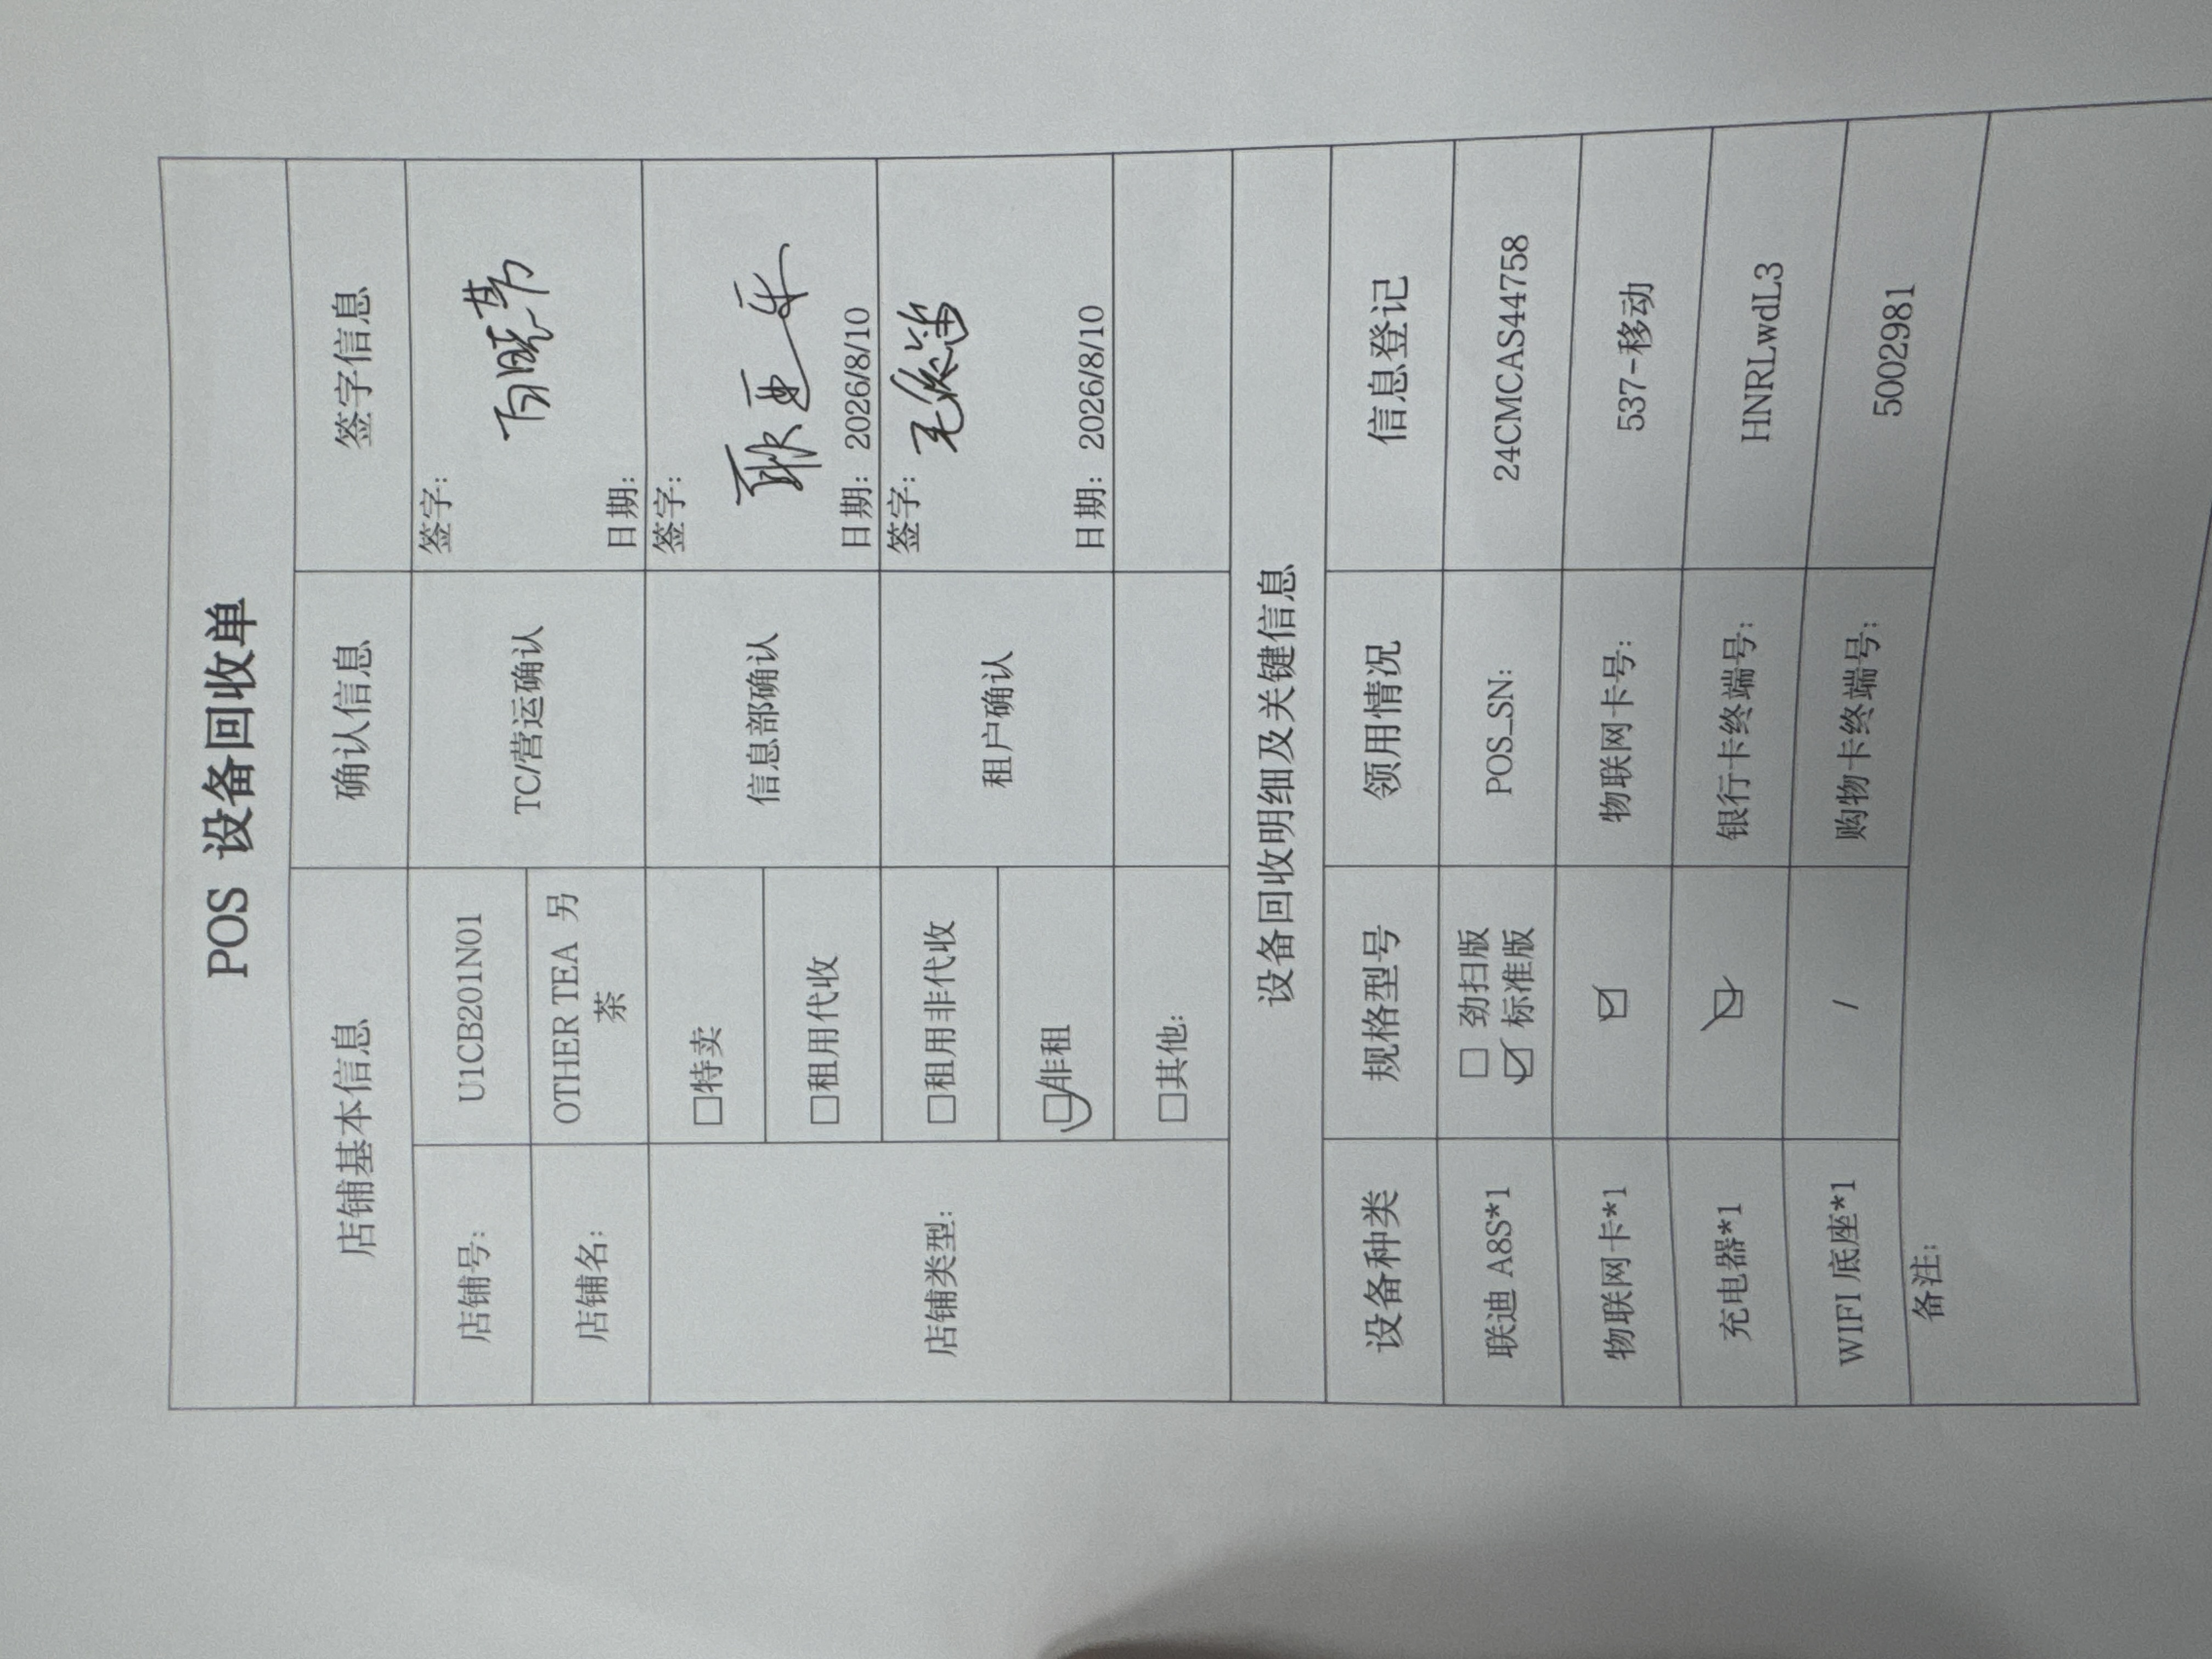 POS 设备回收单
店铺基本信息 确认信息 签字信息
店铺号: U1CB201N01 TC/营运确认 签字:
店铺名: OTHER TEA 另
茶
日期:
店铺类型: □特卖 信息部确认 签字:
耿亚平
□租用代收 日期: 2026/8/10
□租用非代收 租户确认 签字:
☑非租 日期: 2026/8/10
□其他:
设备回收明细及关键信息
设备种类 规格型号 领用情况 信息登记
联迪 A8S*1 □ 劲扫版 POS_SN: 24CMCAS44758
☑ 标准版
物联网卡*1 ☑ 物联网卡号: 537-移动
充电器*1 ☑ 银行卡终端号: HNRLwdL3
WIFI 底座*1 / 购物卡终端号: 5002981
备注: